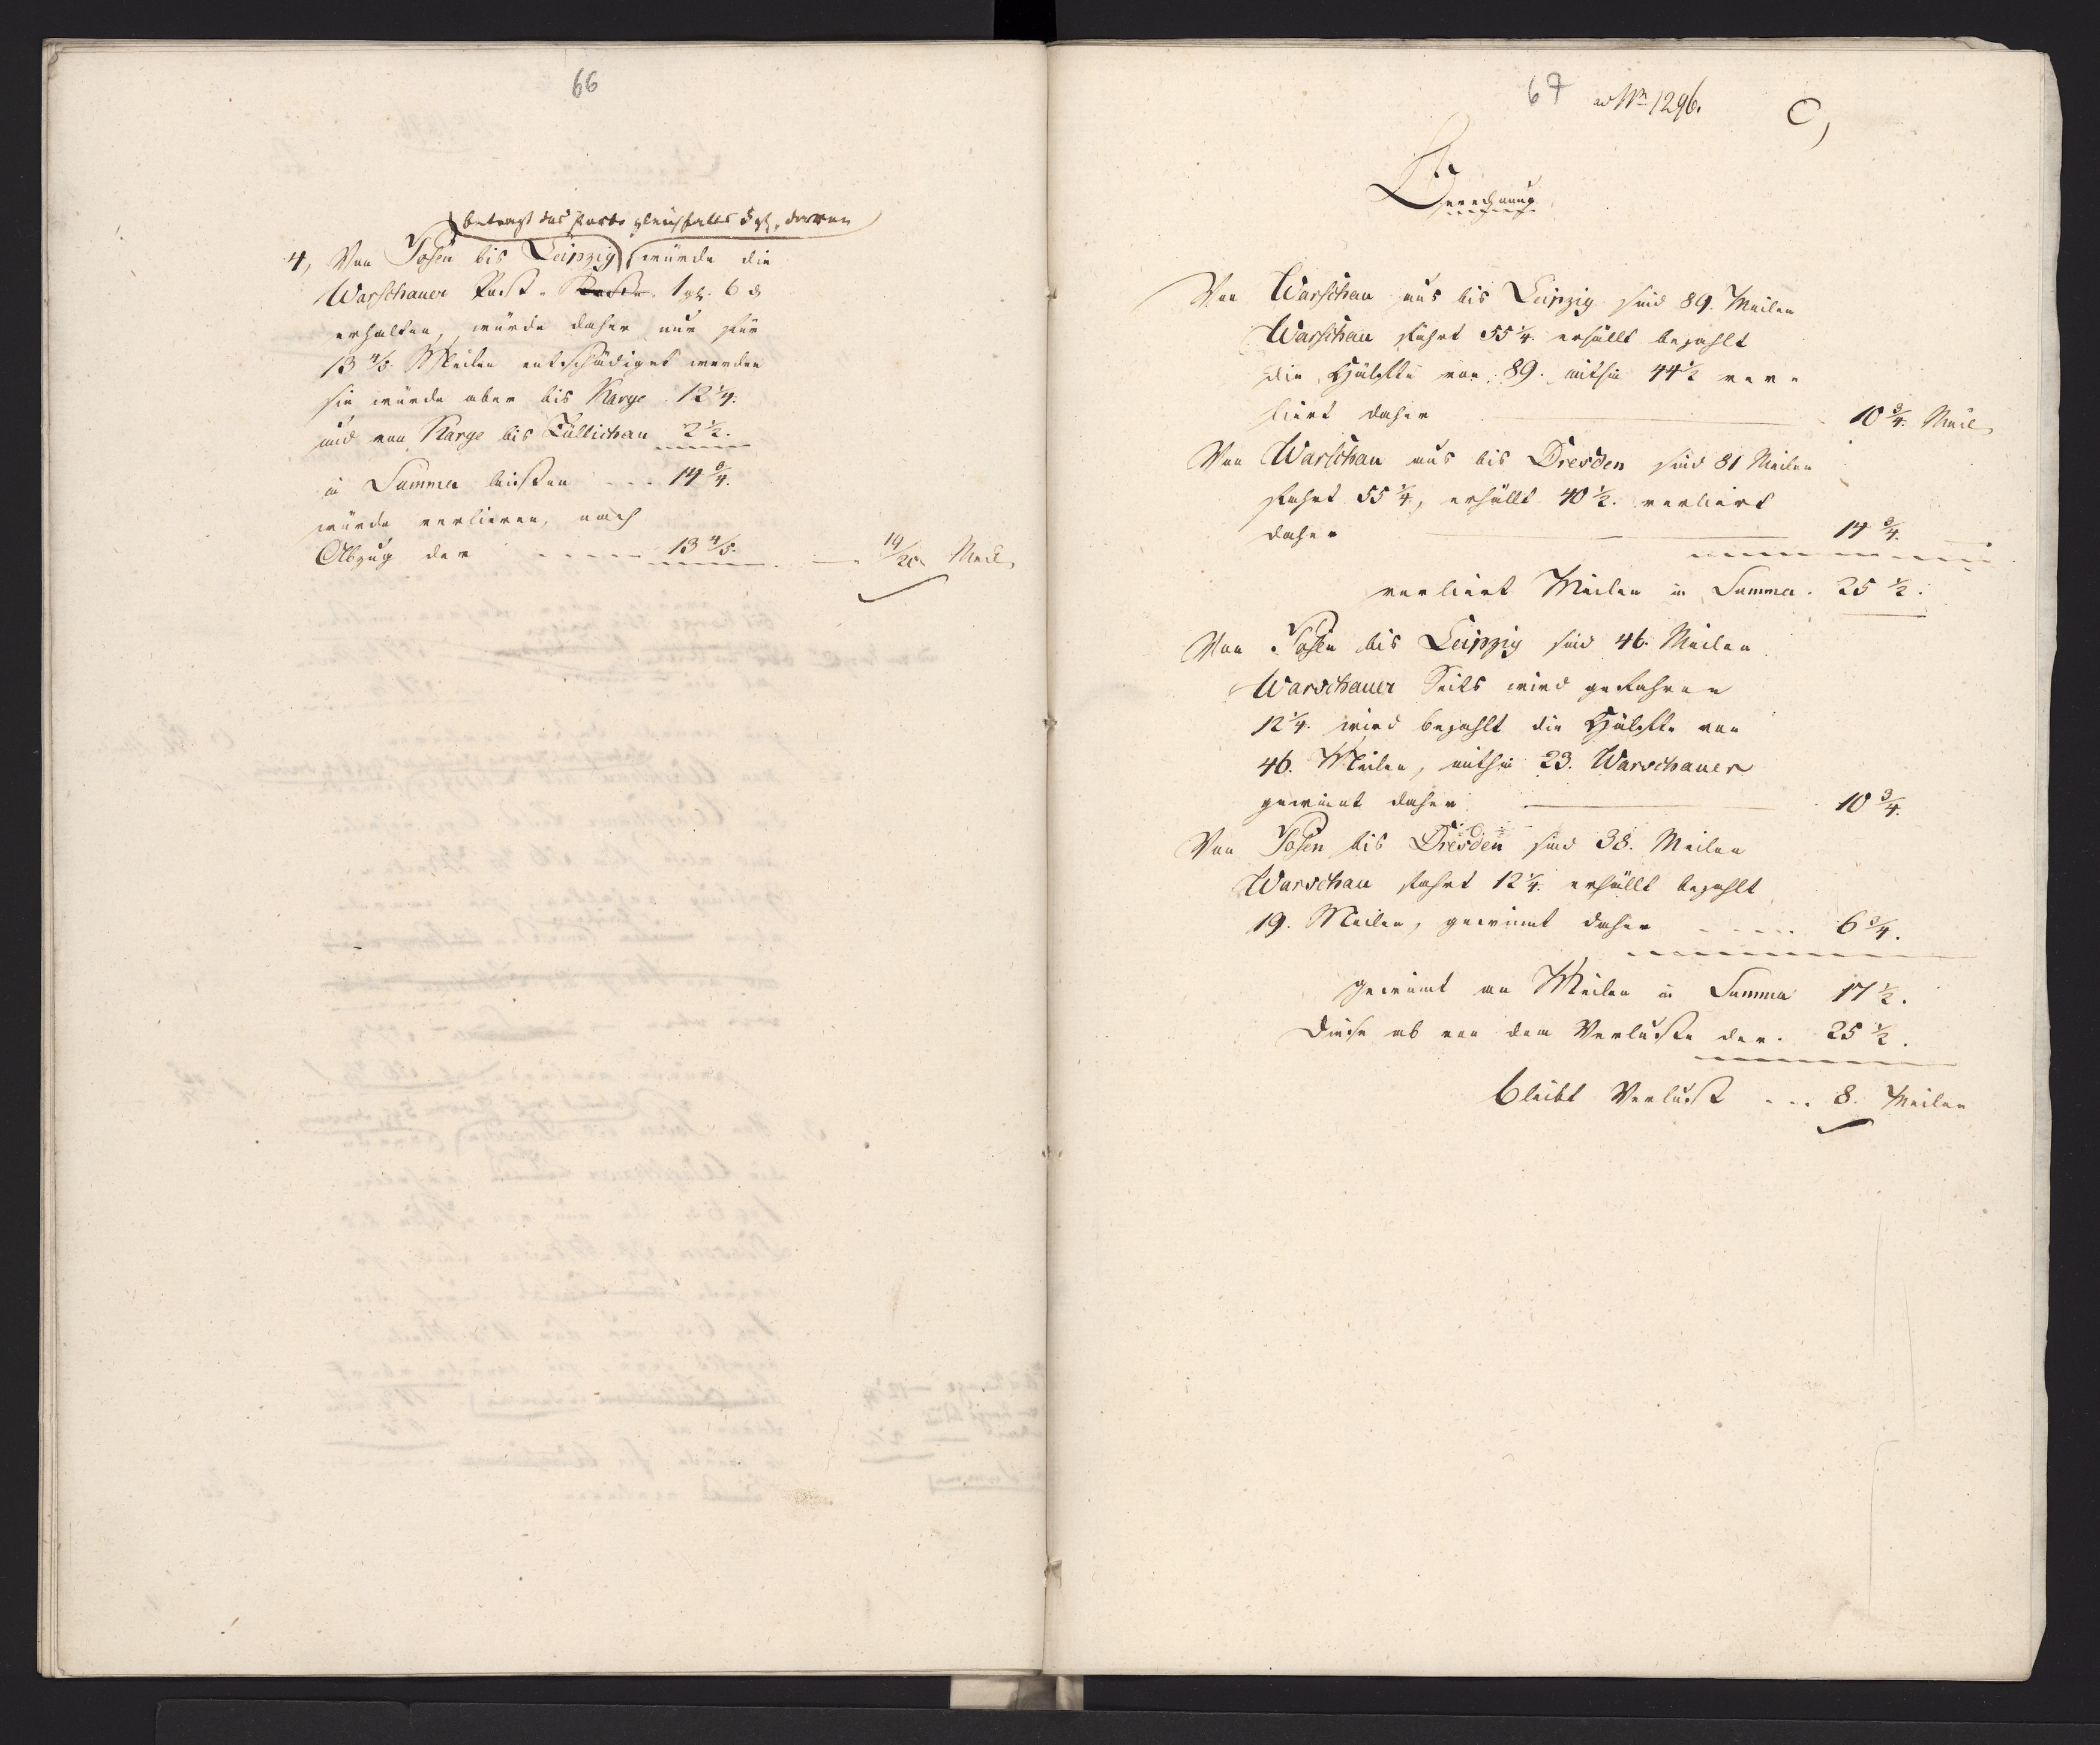 66
beträgt das Porto gleichfalls 5 gl, davon
4, Von Posen bis Leipzig würde die
Warschauer Post- Kasse 1 gl. 6 d
erhalten, würde daher nur für
13 4/5. Meilen entschädiget werden
sie würde aber bis Karge 12 1/4.
und von Karge bis Züllichau 2 1/2.
in Summa leisten - - - 14 3/4.
würde verlieren, nach
Abzug der - - - - - 13 4/5. — 19/20 Meil,
67 ad Nr 1296. C,
Berechnung
Von Warschau aus bis Leipzig sind 89. Meilen
Warschau fährt 55 1/4. erhällt bezahlt
die Hälfte von 89. mithin 44 1/2 ver-
liert daher 10 3/4. Meil,
Von Warschau aus bis Dresden sind 81 Meilen
fährt 55 1/4, erhällt 40 1/2. verliert
daher 14 3/4.
verliert Meilen in Summa. 25 1/2.
Von Posen bis Leipzig sind 46. Meilen
Warschauer Seits wird gefahren
12 1/4. wird bezahlt die Hälfte von
46. Meilen, mithin 23. Warschauer
gewinnt daher 10 3/4.
Von Posen bis Dresden sind 38. Meilen
Warschau fährt 12 1/4. erhällt bezahlt
19. Meilen, gewinnt daher - - - - 6 3/4.
gewinnt an Meilen in Summa 17 1/2.
Diese ab von dem Verluste der. 25 1/2.
bleibt Verlust - - - 8. Meilen